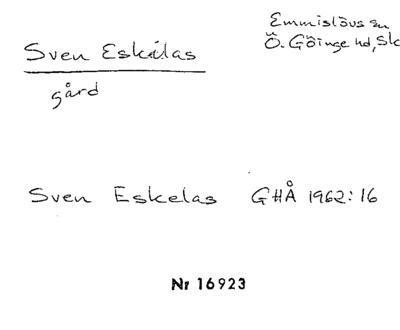 Emmislövs sn
Sven Eskilas Ö. Göinge hd, Sk
gård
Sven Eskelas GHÅ 1962:16
Nr 16923